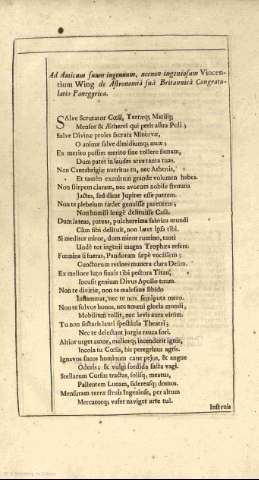 Ad Amicum suum ingenuum, necnon ingeniosum Vincen-
tium Wing de Astronomiâ suâ Britannicâ Congratu-
latio Panegyrica.
Salve Scrutator Cœli, Terræq; Marisq;
Mensor & Ætherei qui petis astra Poli;
Salve Divinæ proles sacrata Minervæ,
O animæ salve dimidiumq; meæ;
Ex merito possim merito sine tollere fientam,
Dum patet in laudes area tanta tuas.
Non Cantabrigiæ nutritus tu, nec Athenis,
Et tamen excultus grande volumen habes.
Non stirpem claram, nec avorum nobile stemma
Jactes, sed dicat Jupiter esse patrem.
Non te plebeium rudet genuisse parentem;
Non humili longè delituisse Casâ.
Dum latens, putans, pulcherrima fabrica mundi
Cùm sibi delituit, non latet ipsa tibi.
Si meditor minor, dum miror rumino, tanti
Unde tot ingenii magna Trophæa
Fœmina si fueras, Pandoram sæpè vocassem;
Cunctorum redolens munera clara Deûm.
Ex meliore luto finxit tibi pectora Titan,
Incusit genium Divus Apollo tuum.
Non te divitiæ, non te malesana libido
Inflammat, nec te nox
Non te fulvor honos, nec novit gloria mundi,
Mobilium tollit, nec levis aura virûm.
Tu non lustraris speciosa Theatri;
Nec te delectant jurgia rauca fori.
Altior urget amor, meliorq; incenderit ignis,
Incola tu Cœlis, his peregrinus agris.
Ignavum fucos hominum cane pejus, & angue
Odisti; & vulgi sordida facta vagi.
Stellarum Cursus tractas, solisq; meatus,
Pallentem Lunam, sidereasq; domus.
Mensuram terræ strasti Ingeniose, per altum
Mercatorq; vafer naviget arte tuâ.
Instruis